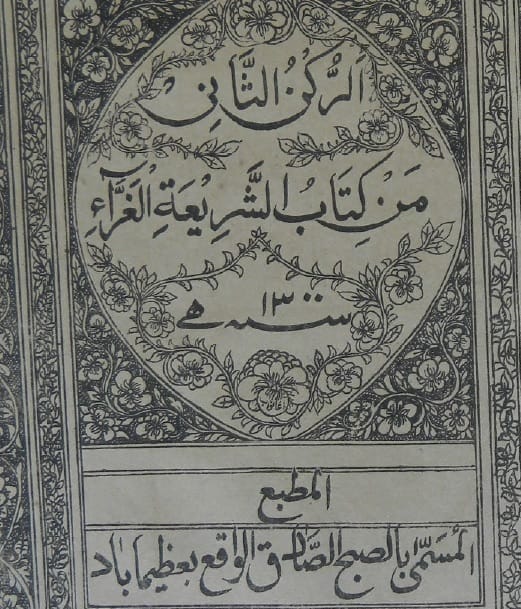 اَلرُّكْنُ الثَّانِىْ
مَنْ كِتَابُ الشَّرِيْعَةِ الْغَرَّآءِ
سنه ١٣٠٠ ھ
المطبع
المُسَمّٰى بالصبح الصَّادق الواقع بعظيماٰباد